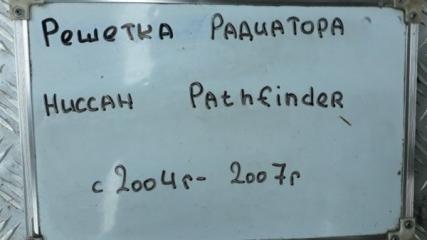 Решетка Радиатора
Ниссан Pathfinder
с 2004г- 2007г